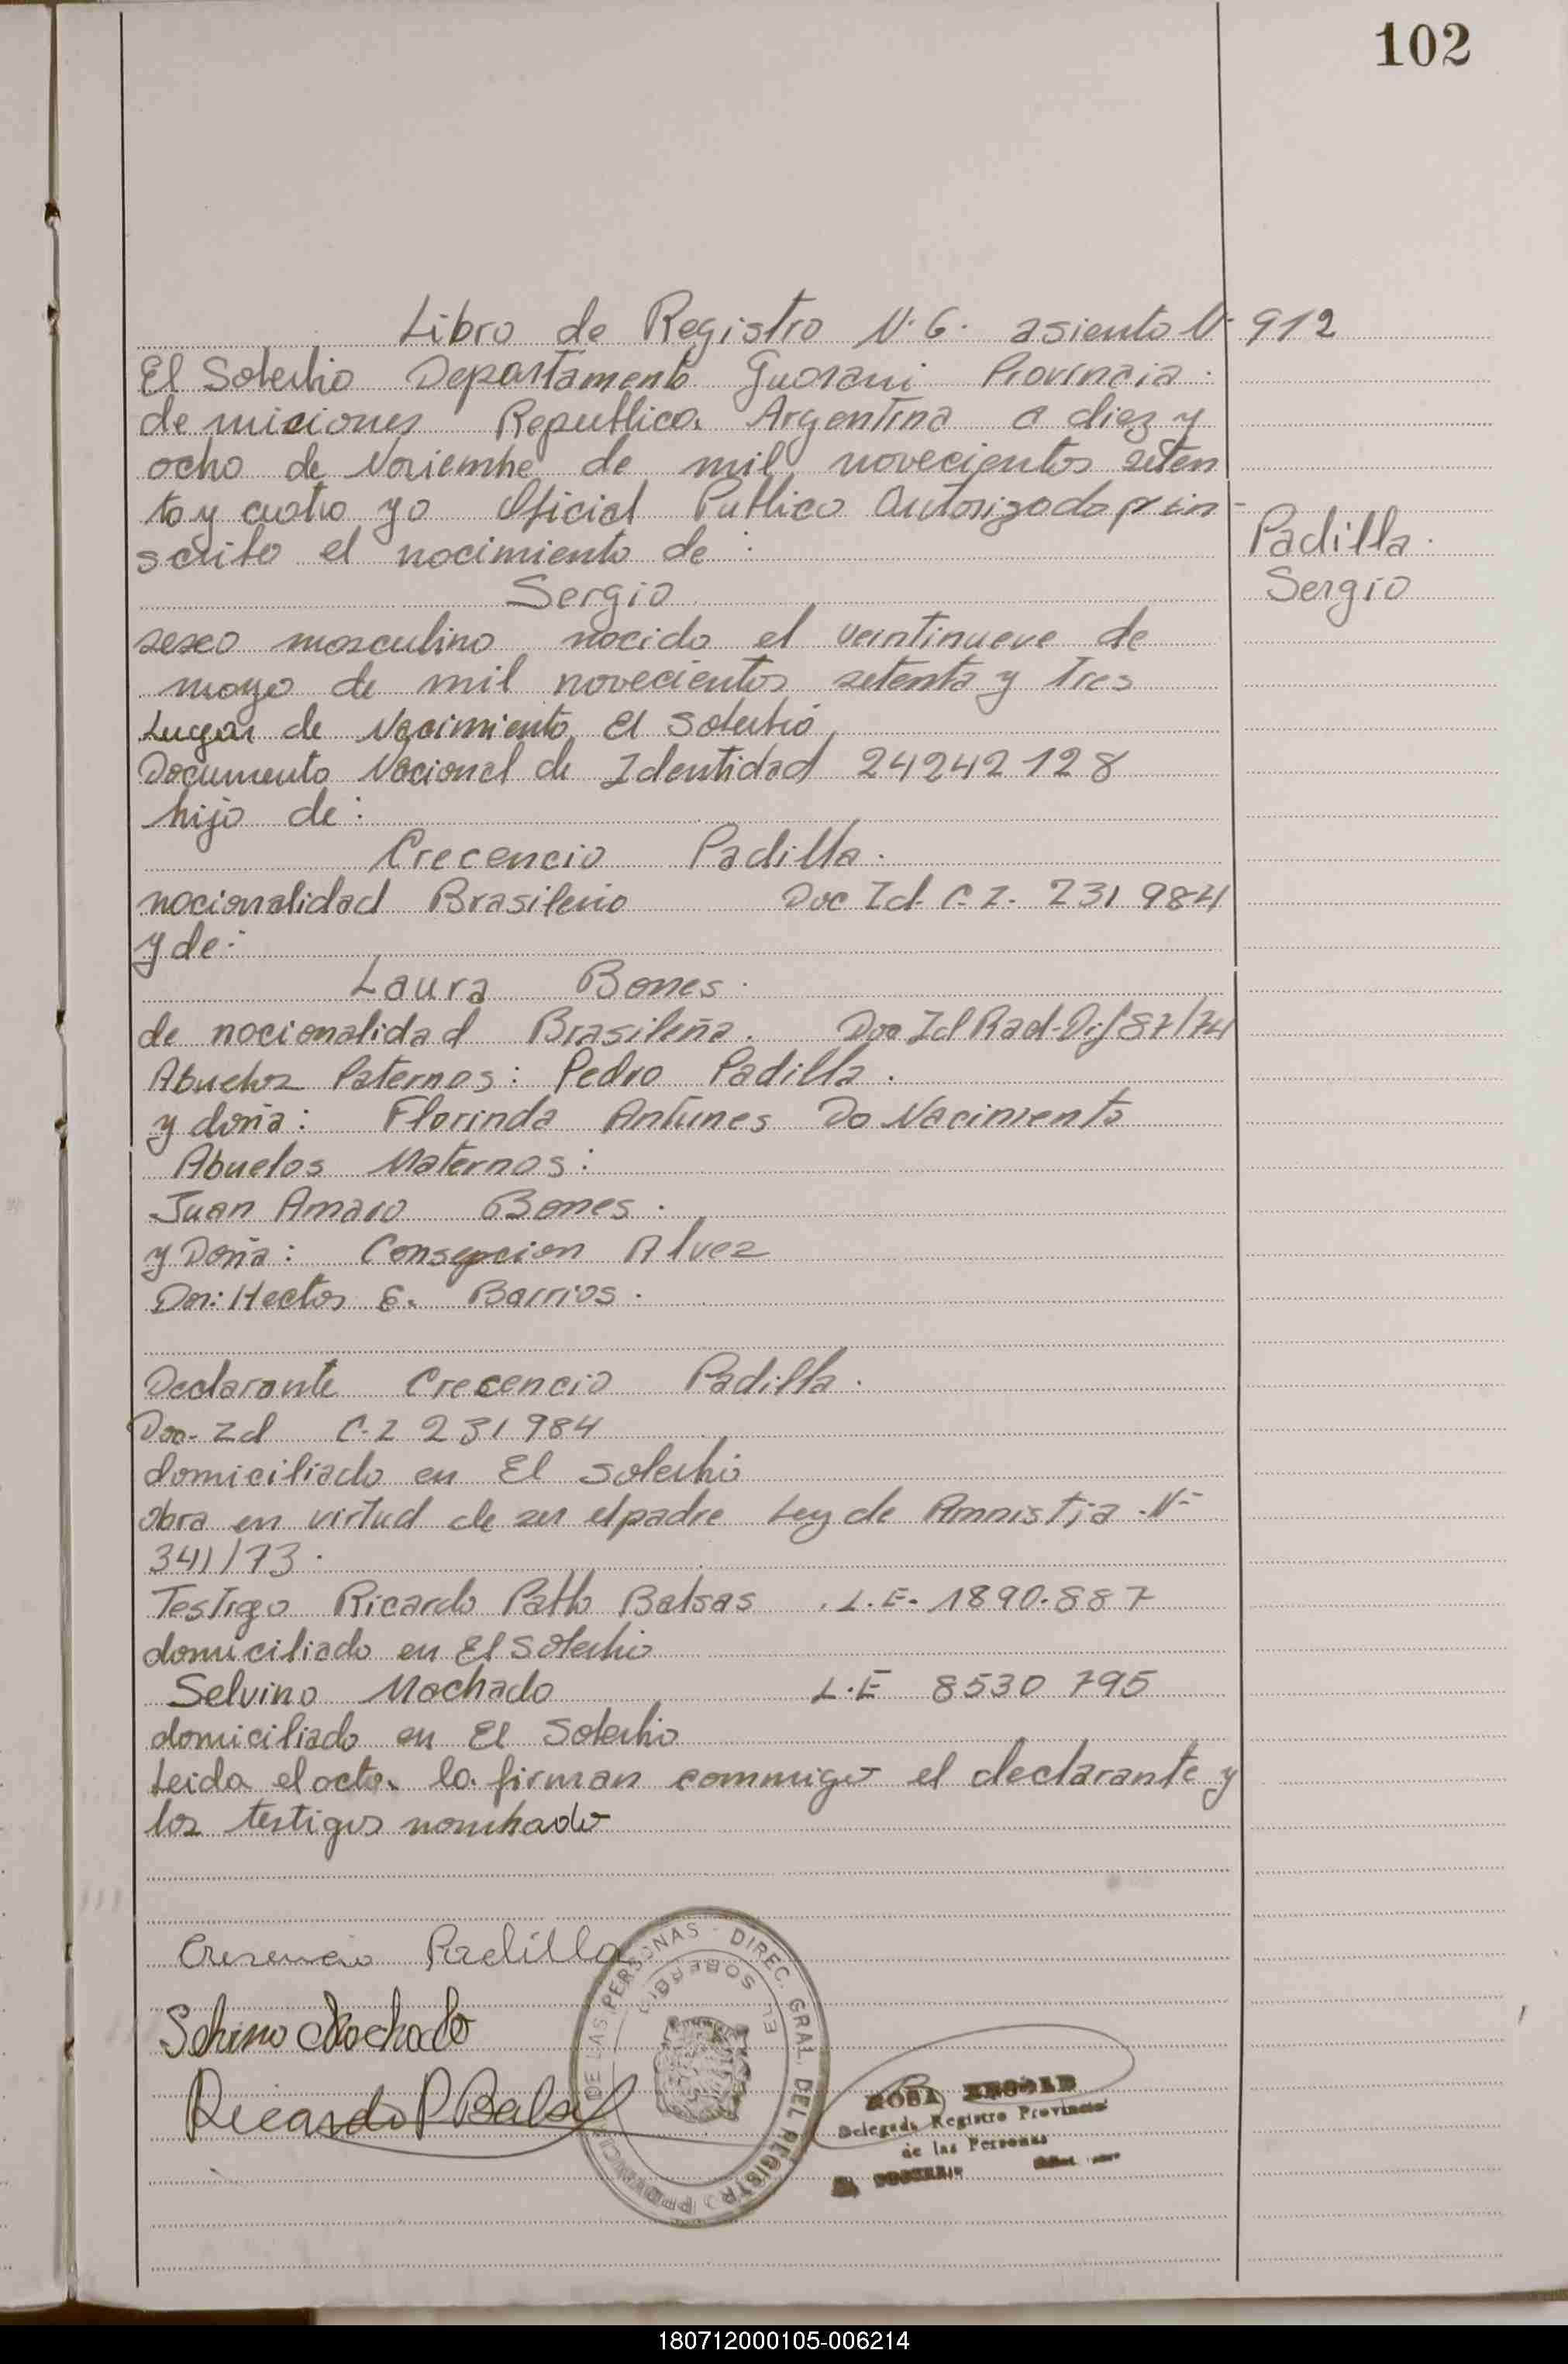 102
Libro de Registro N. 6. asiento N. 912
El Soberbio Departamento Guarani Provincia.
de miciones Republica Argentina a diez y
ocho de Noviembre de mil novecientos seten
ta y cuatro yo Oficial Publico Autorizado p in-
scribo el nacimiento de :
Padilla.
Sergio
Sergio
sexo masculino nacido el veintinueve de
mayo de mil novecientos setenta y Tres
Lugar de Nacimiento El Soberbio
Documento Nacional de Identidad 24242128
hijo de :
Crecencio Padilla.
nacionalidad Brasileño Doc Id. C. I. 231 984
y de:
Laura Bones.
de nacionalidad Brasileña. Doc Id Rad. 87/74
Abuelos Paternos: Pedro Padilla.
y doña: Florinda Antunes Do Nacimento
Abuelos Maternos:
Juan Amaro Bones.
y Doña: Consepcion Alvez
Don: Hector E. Barrios.
Declarante Crecencio Padilla.
Doc. Id C. I 231984
domiciliado en El Soberbio
obra en virtud de ser el padre Ley de Amnistia N-
341/73.
Testigo Ricardo Pablo Balsas . L. E. 1890.887
domiciliado en El Soberbio
Selvino Machado L. E 8530 795
domiciliado en El Soberbio
Leida el acta. la firman commigo el declarante y
los testigos nombrado
Crecencio Padilla
Selvino Machado
Ricardo P Balsas
DE LAS PERSONAS - DIREC. GRAL. DEL REGISTRO PROVINCIAL
EL SOBERBIO
ROSA
Delegada Registro Provincial
de las Personas
180712000105-006214